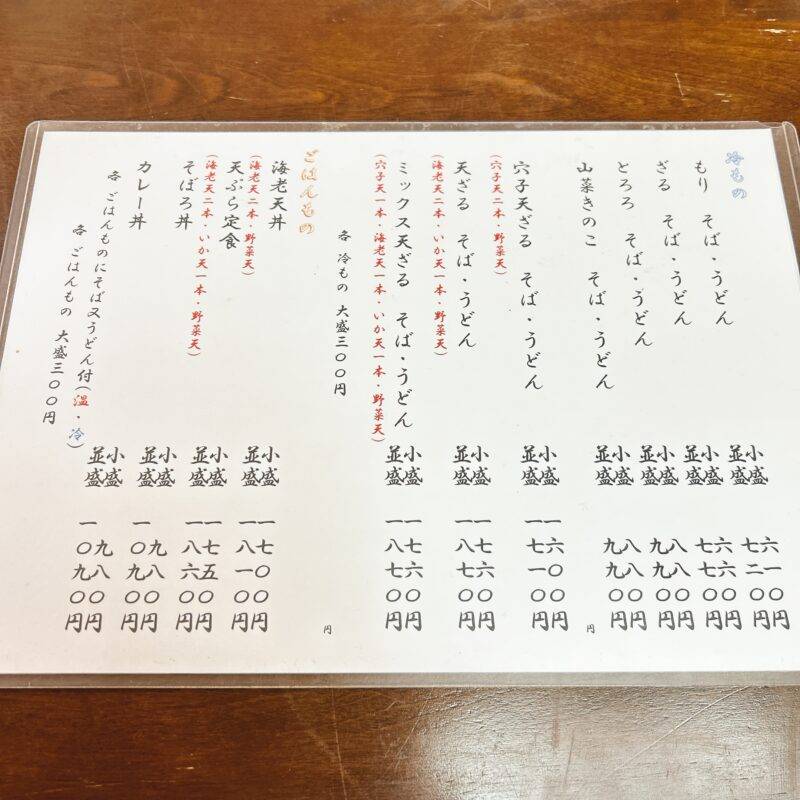 冷もの
もり そば・うどん
小盛 六一〇円
並盛 七二〇円
ざる そば・うどん
小盛 六六〇円
並盛 七七〇円
とろろ そば・うどん
小盛 八八〇円
並盛 九九〇円
山菜きのこ そば・うどん
小盛 八八〇円
並盛 九九〇円
円
穴子天ざる そば・うどん
小盛 一六〇〇円
並盛 一七一〇円
(穴子天二本・野菜天)
天ざる そば・うどん
小盛 一七六〇円
並盛 一八七〇円
(海老天二本・いか天一本・野菜天)
ミックス天ざる そば・うどん
小盛 一七六〇円
並盛 一八七〇円
(穴子天一本・海老天一本・いか天一本・野菜天)
各 冷もの 大盛三〇〇円
円
ごはんもの
海老天丼
小盛 一七〇〇円
並盛 一八一〇円
(海老天二本・野菜天)
天ぷら定食
小盛 一七五〇円
並盛 一八六〇円
(海老天二本・いか天一本・野菜天)
そぼろ丼
小盛 九八〇円
並盛 一〇九〇円
カレー丼
小盛 九八〇円
並盛 一〇九〇円
各 ごはんものにそば又うどん付(温・冷)
各 ごはんもの 大盛三〇〇円